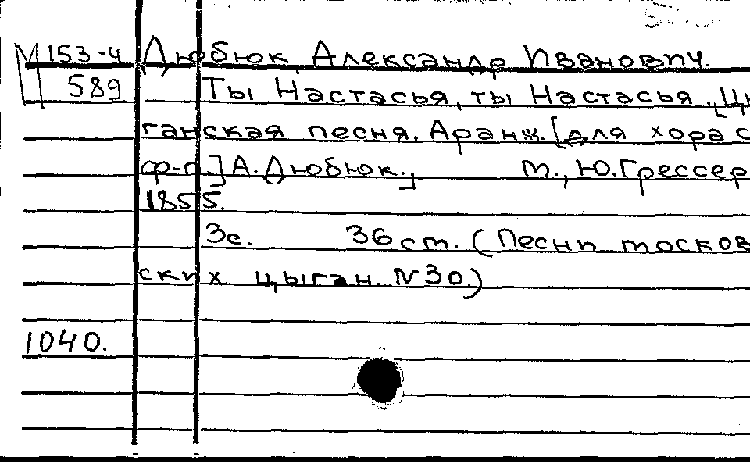 М 153-4 Дюбюк, Александр Иванович.
589 Ты Настасья, ты Настасья. [Цы
ганская песня. Аранж. [для хора с
ф-п.] А. Дюбюк.] М., Ю. Грессер
1855.
3с. 36 см. (Песни москов
ских цыган. №30.)
1040.